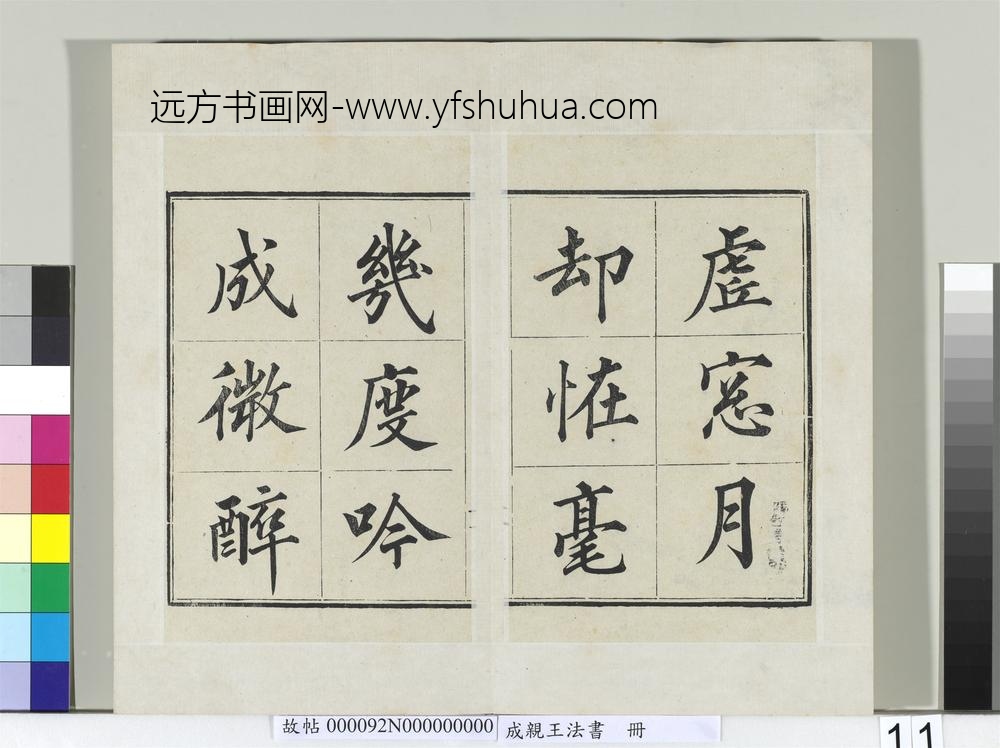 远方书画网-www.yfshuhua.com
虛窓月
却恠毫
幾度吟
成微醉
故帖 000092N000000000
成親王法書 冊
11